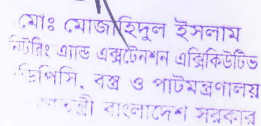 মোঃ মোজাহিদুল ইসলাম
নিটরিং এ্যান্ড এক্সটেনশন এক্সিকিউটিভ
ডিপিসি, বস্ত্র ও পাটমন্ত্রণালয়
বাংলাদেশ সরকার